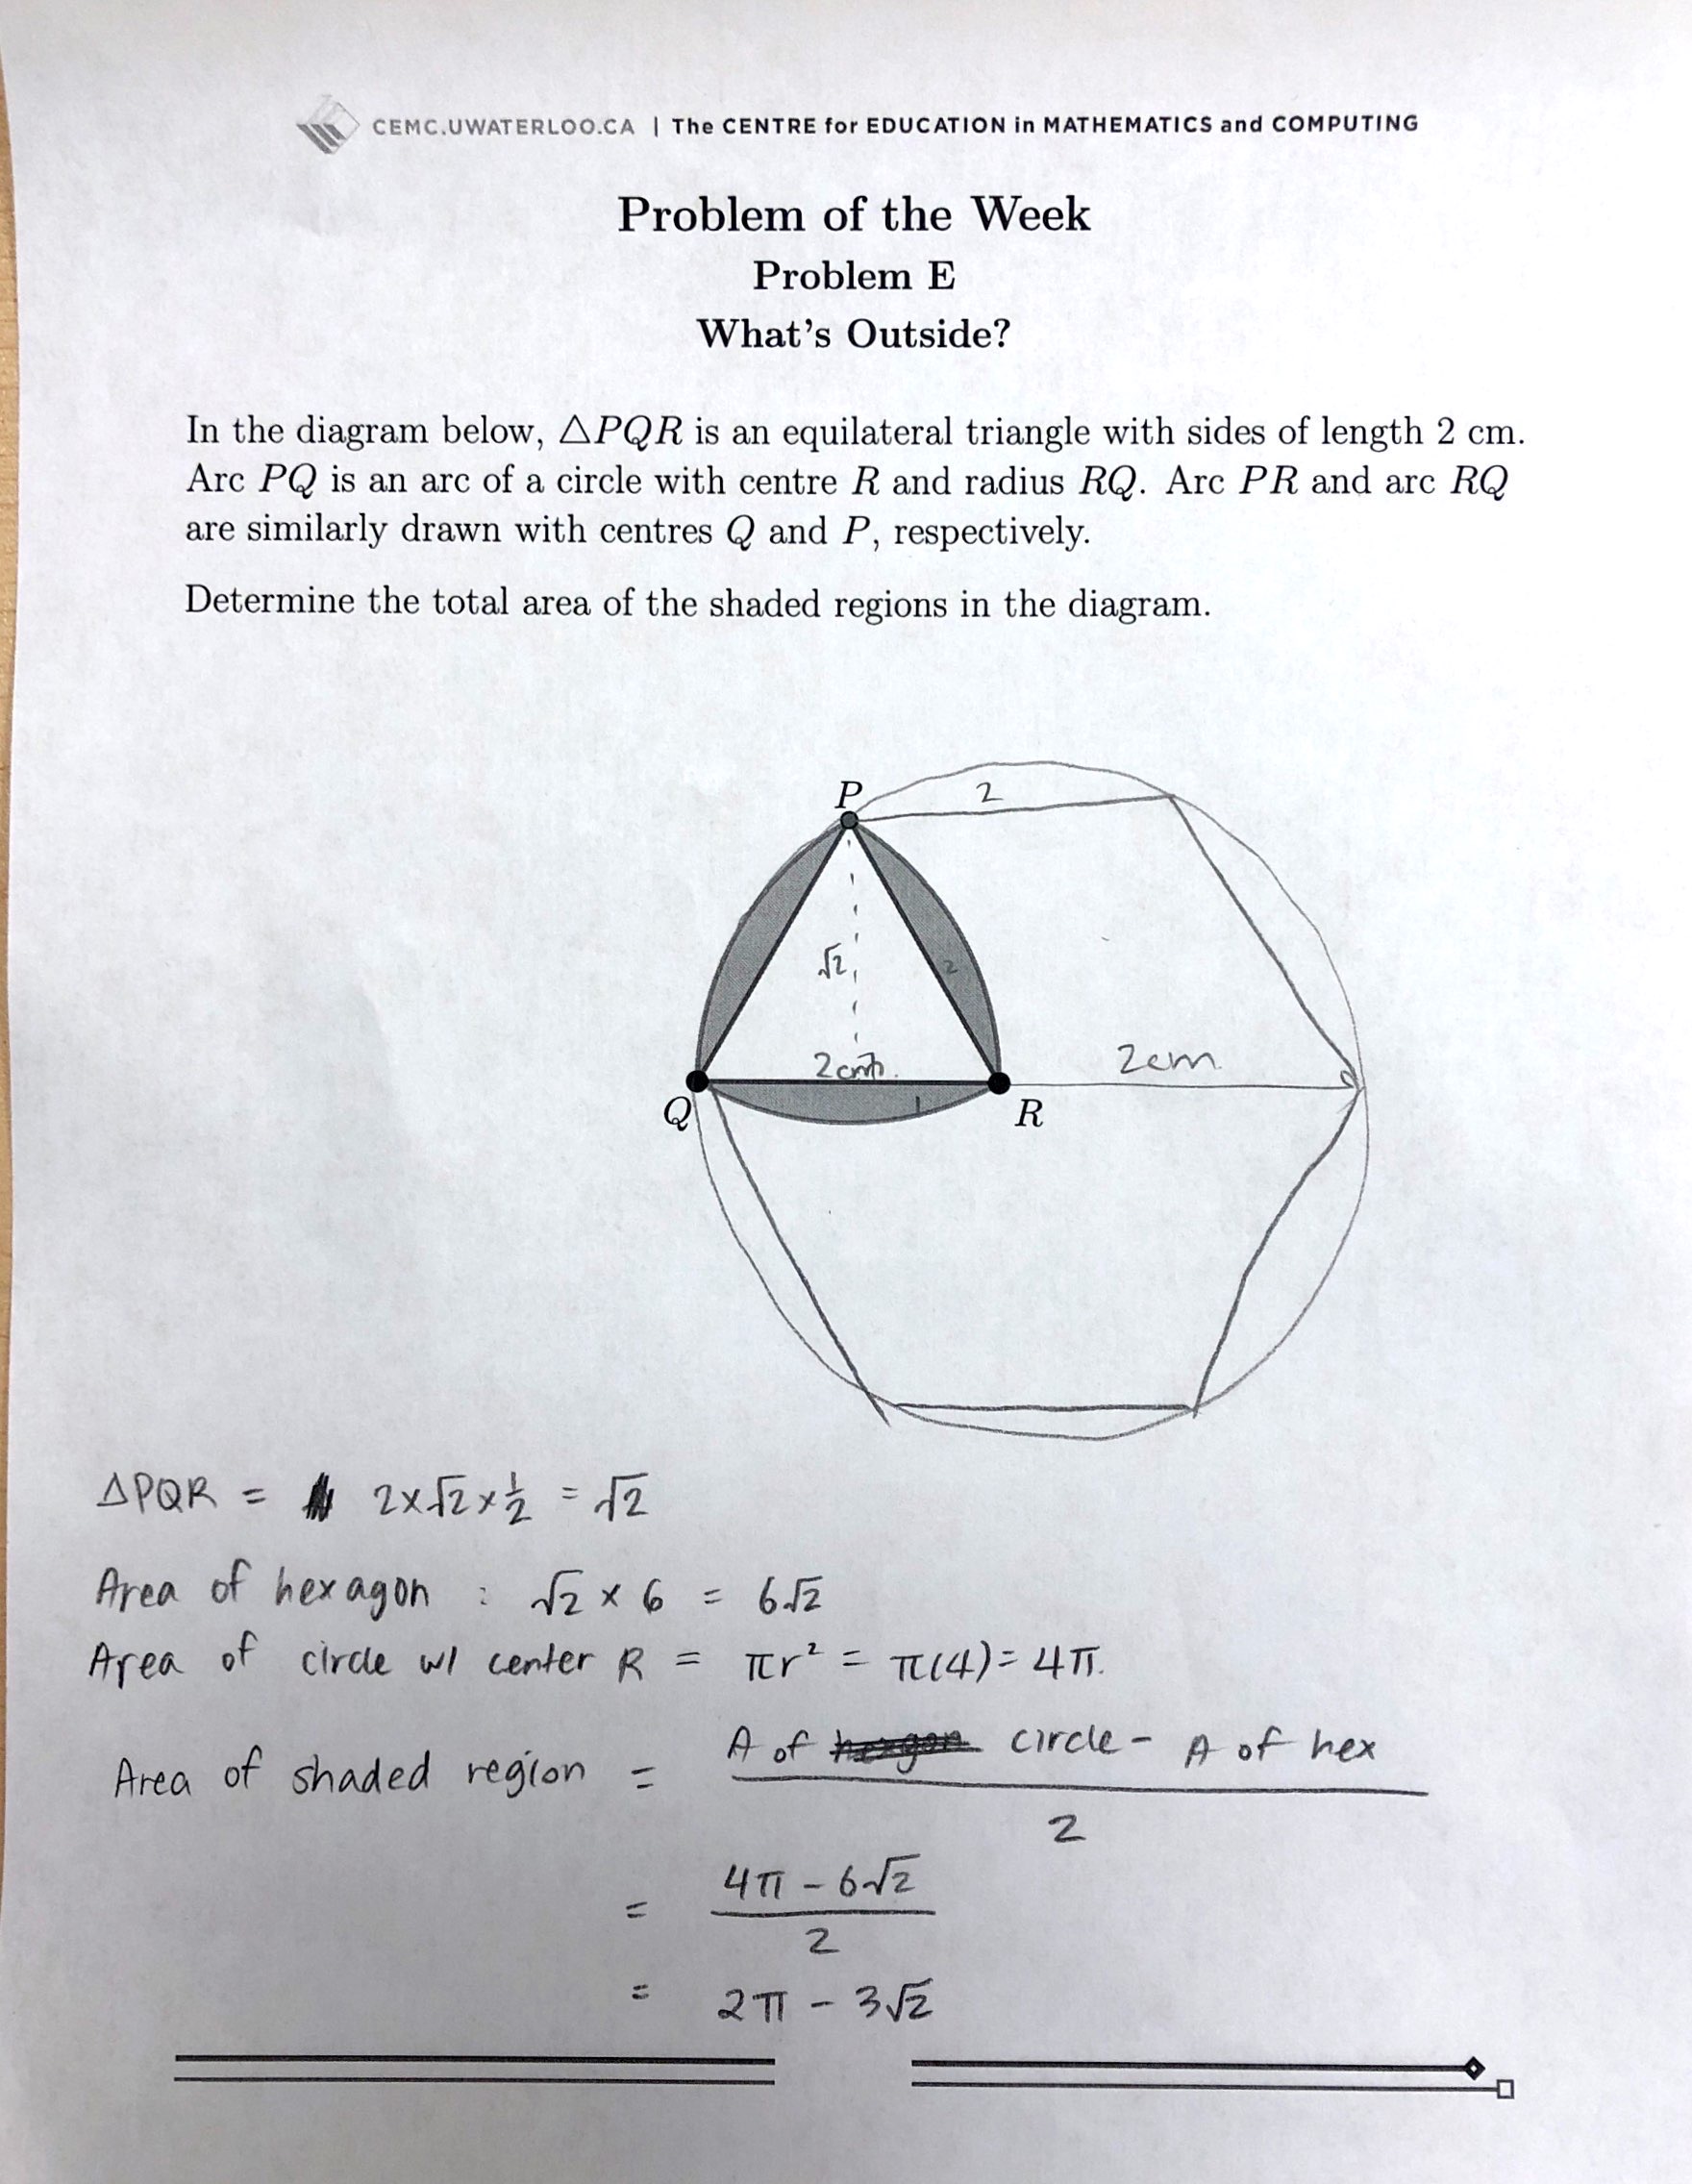 CEMC.UWATERLOO.CA | The CENTRE for EDUCATION in MATHEMATICS and COMPUTING
Problem of the Week
Problem E
What's Outside?
In the diagram below, △PQR is an equilateral triangle with sides of length 2 cm.
Arc PQ is an arc of a circle with centre R and radius RQ. Arc PR and arc RQ
are similarly drawn with centres Q and P, respectively.
Determine the total area of the shaded regions in the diagram.
P
2
√2
2
2cm
2cm
1
Q
R
△PQR = 2×√2×1/2 = √2
Area of hexagon : √2 × 6 = 6√2
Area of circle w/ center R = πr² = π(4) = 4π.
Area of shaded region = (A of circle - A of hex) / 2
= (4π - 6√2) / 2
= 2π - 3√2